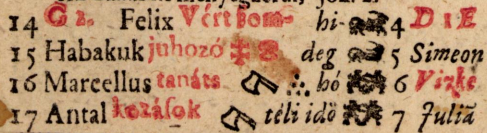 14 G 2. Felix Vértsom- hi- 4 D I E
15 Habakuk juhozó deg 5 Simeon
16 Marcellus tanáts .:. hó 6 Vizke
17 Antal kozások téli idő 7 Julia